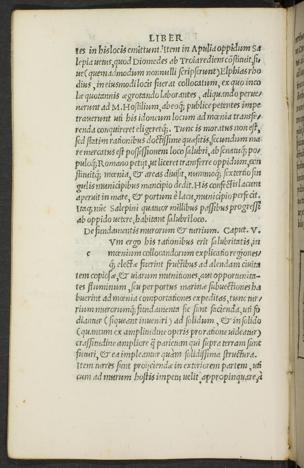 LIBER
tes in his locis emittunt. Item in Apulia oppidum Sa
lepia uetus, quod Diomedes ab Troia rediens cōstituit, si
ue (quemadmodum nonnulli scripserunt) Elphias rho
dius, in eiusmodi locis fuerat collocatum, ex quo inco
læ quotannis ægrotando laborantes, aliquando perue
nerunt ad M. Hostilium, ab eoq; publice petentes impe
trauerunt uti his idoneum locum ad mœnia transfe-
renda conquireret eligeretq;. Tunc is moratus non est,
sed statim rationibus doctissime quæsitis, secundum ma
re mercatus est possessionem loco salubri, ab senatuq; po
puloq; Romano petijt, ut liceret transferre oppidum, con
stituitq; mœnia, & areas diuisit, nummoq; sextertio sin
gulis municipibus mancipio dedit. His confectis lacum
aperuit in mare, & portum è lacu, municipio perfecit.
Itaq; nūc Salepini quatuor millibus passibus progressi
ab oppido uetere, habitant salubri loco.
De fundamentis murorum & turrium. Caput. V.
Vm ergo his rationibus erit salubritatis, in
c mœnium collocandorum explicatio regiones
q; electæ fuerint fructibus ad alendam ciuita
tem copiosæ, & uiarum munitiones, aut opportunita-
tes fluminum, seu per portus marinæ subuectiones ha
buerint ad mœnia comportationes expeditas, tunc tur
rium murorumq; fundamenta sic sunt facienda, uti fo
diantur (si queant inueniri) ad solidum, & in solido
(quantum ex amplitudine operis pro ratione uideatur)
crassitudine ampliore q̄ parietum qui supra terram sunt
futuri, & ea impleantur quàm solidissima structura.
Item turres sunt proijciendæ in exteriorem partem, uti
cum ad murum hostis impetu uelit appropinquare, à